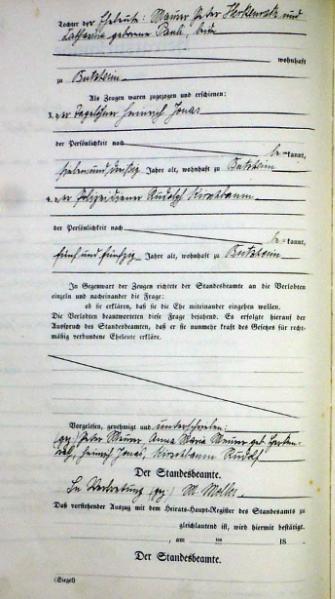 Tochter der Eheleute: Maurer Peter Herkenrath und
Catharina geborene Pauli, beide
wohnhaft
zu Butzheim
Als Zeugen waren zugezogen und erschienen:
3. der Tagelöhner Heinrich Jonas
der Persönlichkeit nach
be kannt,
sieben und dreißig Jahre alt, wohnhaft zu Butzheim
4. der Polizeidiener Rudolph Kirschbaum
der Persönlichkeit nach
be kannt,
fünf und fünfzig Jahre alt, wohnhaft zu Butzheim
In Gegenwart der Zeugen richtete der Standesbeamte an die Verlobten
einzeln und nacheinander die Frage:
ob sie erklären, daß sie die Ehe miteinander eingehen wollen.
Die Verlobten beantworteten diese Frage bejahend. Es erfolgte hierauf der
Ausspruch des Standesbeamten, daß er sie nunmehr kraft des Gesetzes für recht-
mäßig verbundene Eheleute erkläre.
Vorgelesen, genehmigt und unterschrieben:
(gz) Peter Meurer, Anna Maria Meurer geb Herken-
rath, Heinrich Jonas, Kirschbaum Rudolf
Der Standesbeamte.
In Vertretung (gz) M.
Daß vorstehender Auszug mit dem Heirats-Haupt-Register des Standesamts zu
gleichlautend ist, wird hiermit bestätigt.
, am ten 18
Der Standesbeamte.
(Siegel)